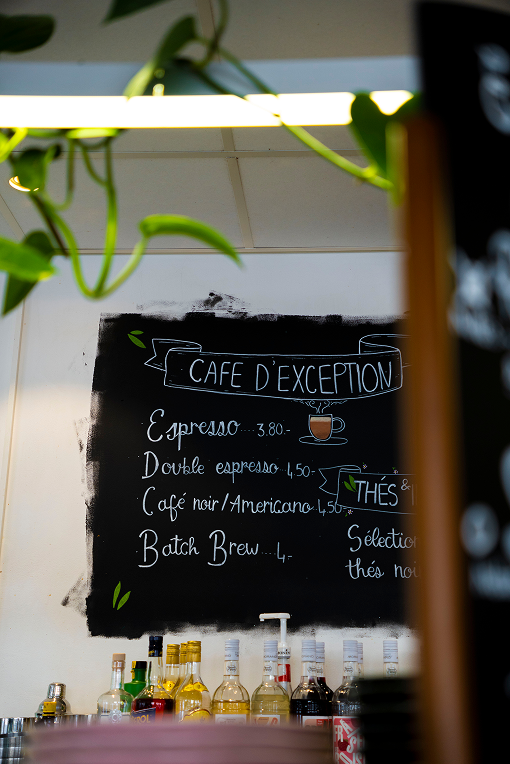 CAFE D'EXCEPTION
Espresso....3.80.-
Double espresso 4,50-
Café noir/Americano 4,50.-
Batch Brew...4,-
THÉS &
Sélection
thés noi